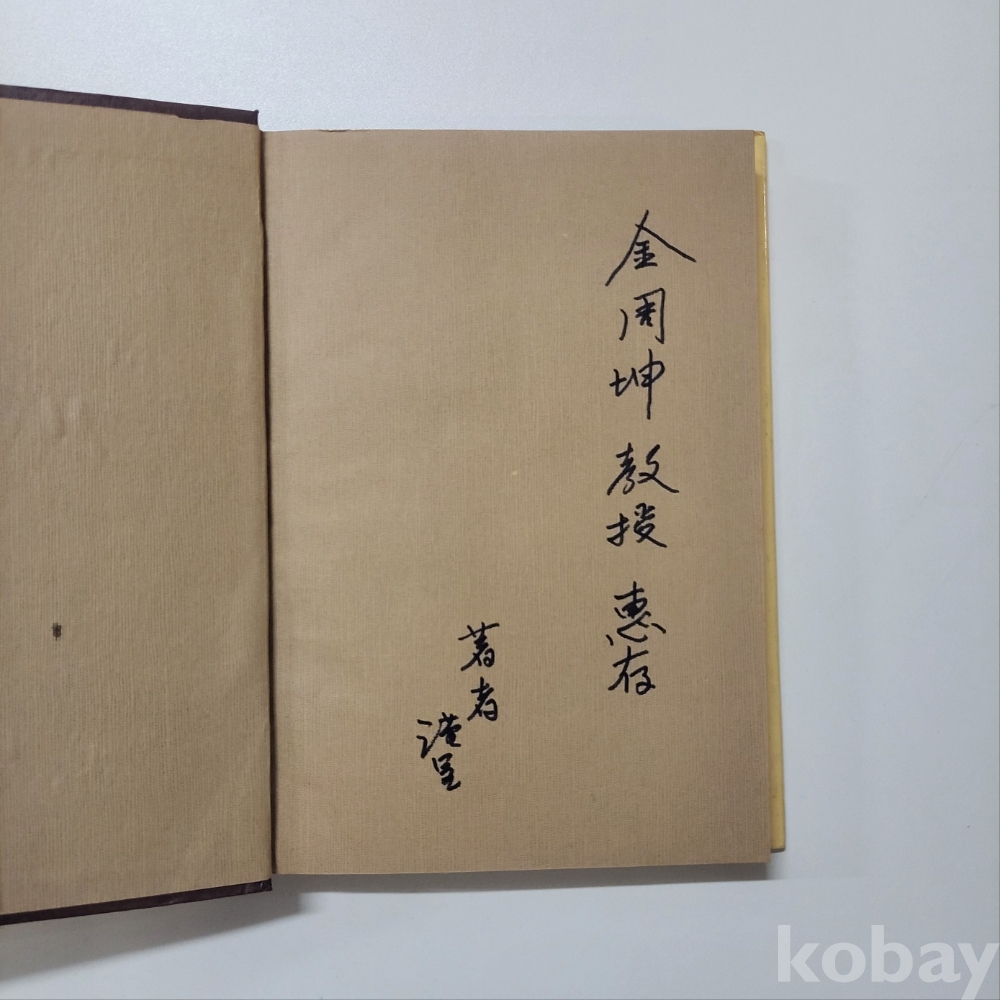 金周坤 教授 惠存
著者
謹呈
kobay